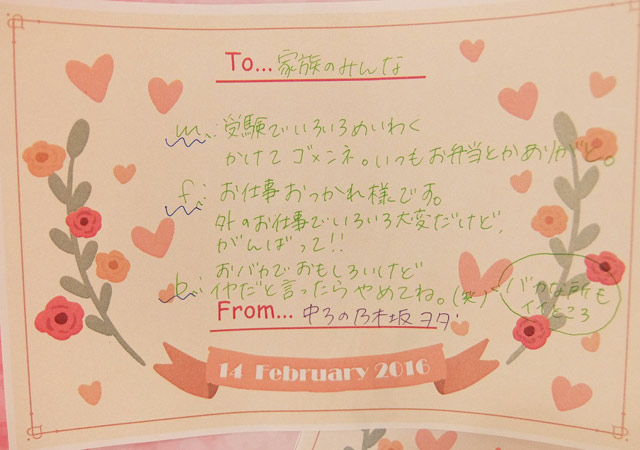 To... 家族のみんな
m: 受験でいろいろめいわく
かけて ゴメンネ。いつもお弁当とかありがと。
f: お仕事おつかれ様です。
外のお仕事でいろいろ大変だけど、
がんばって!!
おバカでおもしろいけど
b: イヤだと言ったらやめてね。(笑)
バカな所も
イイところ
From... 中3の乃木坂ヲタ
14 February 2016